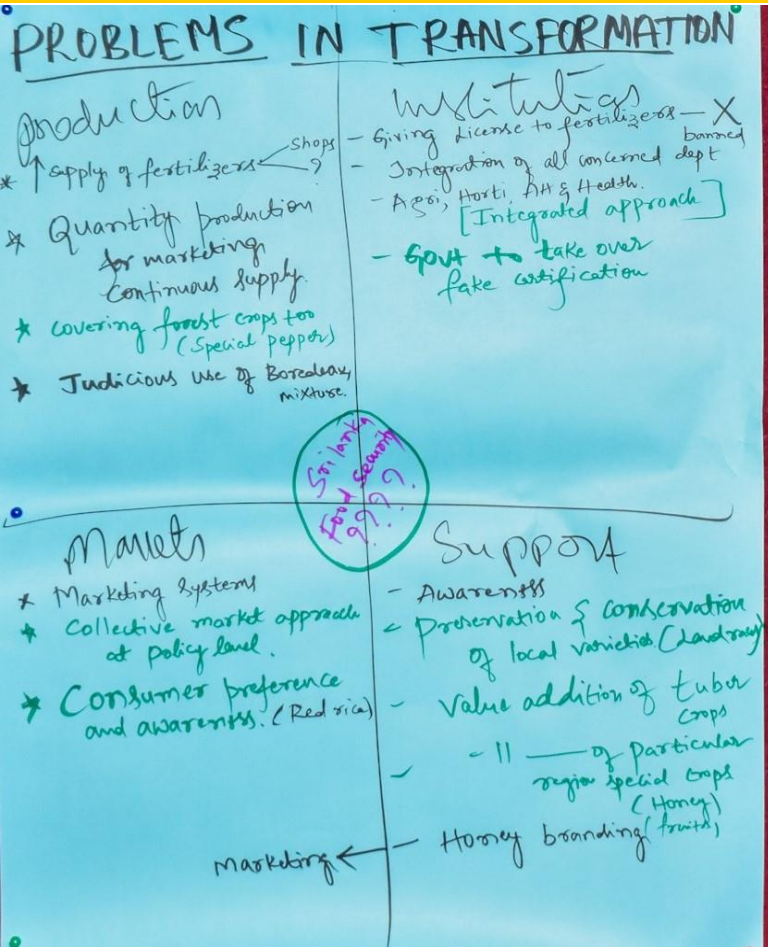 PROBLEMS IN TRANSFORMATION
Production
* ↑ supply of fertilizers < Shops
?
* Quantity production
for marketing
Continuous Supply.
* covering forest crops too
(Special pepper)
* Judicious use of Boredeaux
mixture.
Institutions
- Giving License to fertilizers - X
banned
- Integration of all concerned dept
- Agri, Horti, AH & Health.
[Integrated approach]
- Govt to take over
fake certification
Srilanka
Food Security
????
Markets
* Marketing Systems
* Collective market approach
at policy level.
* Consumer preference
and awareness. (Red rice)
Support
- Awareness
- Preservation & conservation
of local varieties (Landraces)
- Value addition of tuber
crops
- - 11 - of particular
region special crops
(Honey)
(fruits)
- Honey branding
Marketing ←